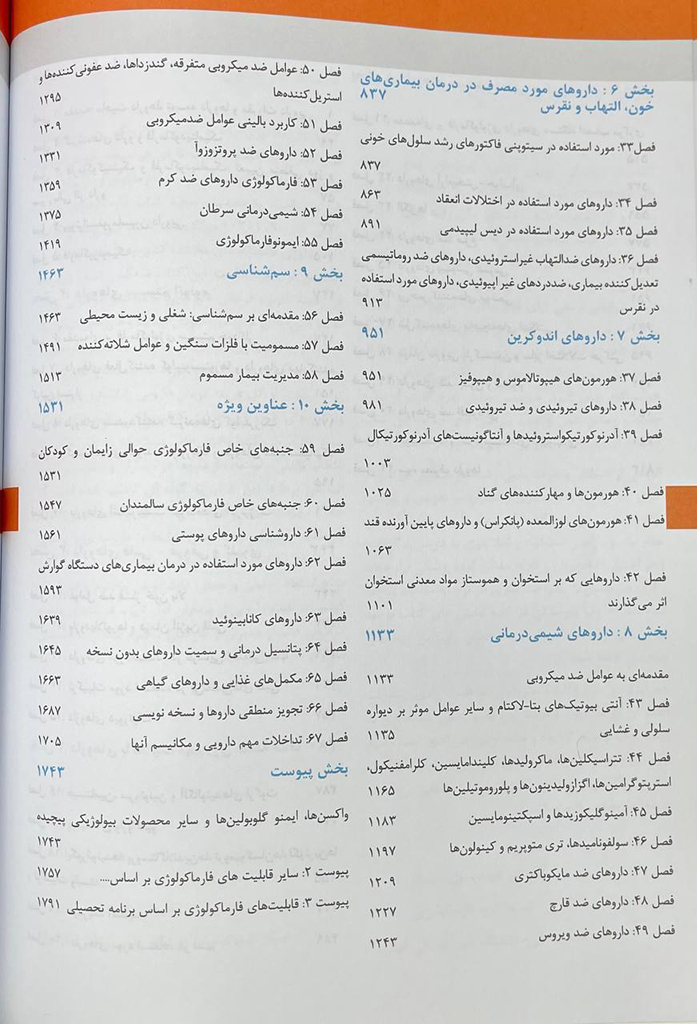 بخش ۶ : داروهای مورد مصرف در درمان بیماری‌های
خون، التهاب و نقرس ۸۳۷
فصل۳۳: مورد استفاده در سیتوپنی فاکتورهای رشد سلول‌های خونی
۸۳۷
فصل ۳۴: داروهای مورد استفاده در اختلالات انعقاد ۸۶۳
فصل ۳۵: داروهای مورد استفاده در دیس لیپیدمی ۸۹۱
فصل ۳۶: داروهای ضدالتهاب غیراستروئیدی، داروهای ضد روماتیسمی
تعدیل‌کننده بیماری، ضددردهای غیر اپیوئیدی، داروهای مورد استفاده
در نقرس ۹۱۳
بخش ۷ : داروهای اندوکرین ۹۵۱
فصل ۳۷: هورمون‌های هیپوتالاموس و هیپوفیز ۹۵۱
فصل ۳۸: داروهای تیروئیدی و ضد تیروئیدی ۹۸۱
فصل ۳۹: آدرنوکورتیکواستروئیدها و آنتاگونیست‌های آدرنوکورتیکال
۱۰۰۳
فصل ۴۰: هورمون‌ها و مهارکننده‌های گناد ۱۰۲۵
فصل ۴۱: هورمون‌های لوزالمعده (پانکراس) و داروهای پایین آورنده قند
۱۰۶۳
فصل ۴۲: داروهایی که بر استخوان و هموستاز مواد معدنی استخوان
اثر می‌گذارند ۱۱۰۱
بخش ۸ : داروهای شیمی‌درمانی ۱۱۳۳
مقدمه‌ای به عوامل ضد میکروبی ۱۱۳۳
فصل ۴۳: آنتی بیوتیک‌های بتا-لاکتام و سایر عوامل موثر بر دیواره
سلولی و غشایی ۱۱۳۵
فصل ۴۴: تتراسیکلین‌ها، ماکرولیدها، کلیندامایسین، کلرامفنیکول،
استرپتوگرامین‌ها، اگزازولیدینون‌ها و پلوروموتیلین‌ها ۱۱۶۵
فصل ۴۵: آمینوگلیکوزیدها و اسپکتینومایسین ۱۱۸۳
فصل ۴۶: سولفونامیدها، تری متوپریم و کینولون‌ها ۱۱۹۷
فصل ۴۷: داروهای ضد مایکوباکتری ۱۲۰۹
فصل ۴۸: داروهای ضد قارچ ۱۲۲۷
فصل ۴۹: داروهای ضد ویروس ۱۲۴۳
فصل ۵۰: عوامل ضد میکروبی متفرقه، گندزداها، ضد عفونی‌کننده‌ها و
استریل‌کننده‌ها ۱۲۹۵
فصل ۵۱: کاربرد بالینی عوامل ضدمیکروبی ۱۳۰۹
فصل ۵۲: داروهای ضد پروتزوزوآ ۱۳۳۱
فصل ۵۳: فارماکولوژی داروهای ضد کرم ۱۳۵۹
فصل ۵۴: شیمی‌درمانی سرطان ۱۳۷۵
فصل ۵۵: ایمونوفارماکولوژی ۱۴۱۹
بخش ۹ : سم‌شناسی ۱۴۶۳
فصل ۵۶: مقدمه‌ای بر سم‌شناسی: شغلی و زیست محیطی ۱۴۶۳
فصل ۵۷: مسمومیت با فلزات سنگین و عوامل شلاته‌کننده ۱۴۹۱
فصل ۵۸: مدیریت بیمار مسموم ۱۵۱۳
بخش ۱۰ : عناوین ویژه ۱۵۳۱
فصل ۵۹: جنبه‌های خاص فارماکولوژی حوالی زایمان و کودکان
۱۵۳۱
فصل ۶۰: جنبه‌های خاص فارماکولوژی سالمندان ۱۵۴۷
فصل ۶۱: داروشناسی داروهای پوستی ۱۵۶۱
فصل ۶۲: داروهای مورد استفاده در درمان بیماری‌های دستگاه گوارش
۱۵۹۳
فصل ۶۳: داروهای کانابینوئید ۱۶۳۹
فصل ۶۴: پتانسیل درمانی و سمیت داروهای بدون نسخه ۱۶۴۵
فصل ۶۵: مکمل‌های غذایی و داروهای گیاهی ۱۶۶۳
فصل ۶۶: تجویز منطقی داروها و نسخه نویسی ۱۶۸۷
فصل ۶۷: تداخلات مهم دارویی و مکانیسم آنها ۱۷۰۵
بخش پیوست ۱۷۴۳
واکسن‌ها، ایمنو گلوبولین‌ها و سایر محصولات بیولوژیکی پیچیده
۱۷۴۳
پیوست ۲: سایر قابلیت های فارماکولوژی بر اساس.... ۱۷۵۷
پیوست ۳: قابلیت‌های فارماکولوژی بر اساس برنامه تحصیلی ۱۷۹۱